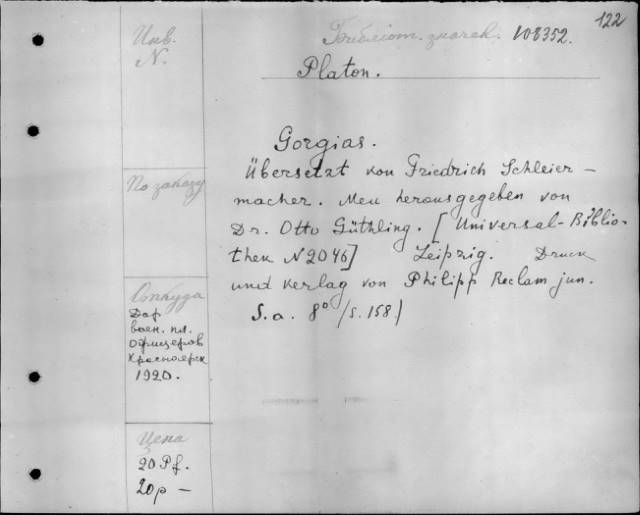 122
Библіот. значек. 108352.
Инв.
N.
Platon.
Gorgias.
Übersetzt von Friedrich Schleier-
macher. Neu herausgegeben von
Dr. Otto Güthling. [Universal-Biblio-
thek N 2046] Leipzig. Druck
und Verlag von Philipp Reclam jun.
S. a. 8° /S. 158./
По заказу
Откуда
Дар
воен. пл.
Офицеров
Красноярск
1920.
Цена
20 Pf.
20р —